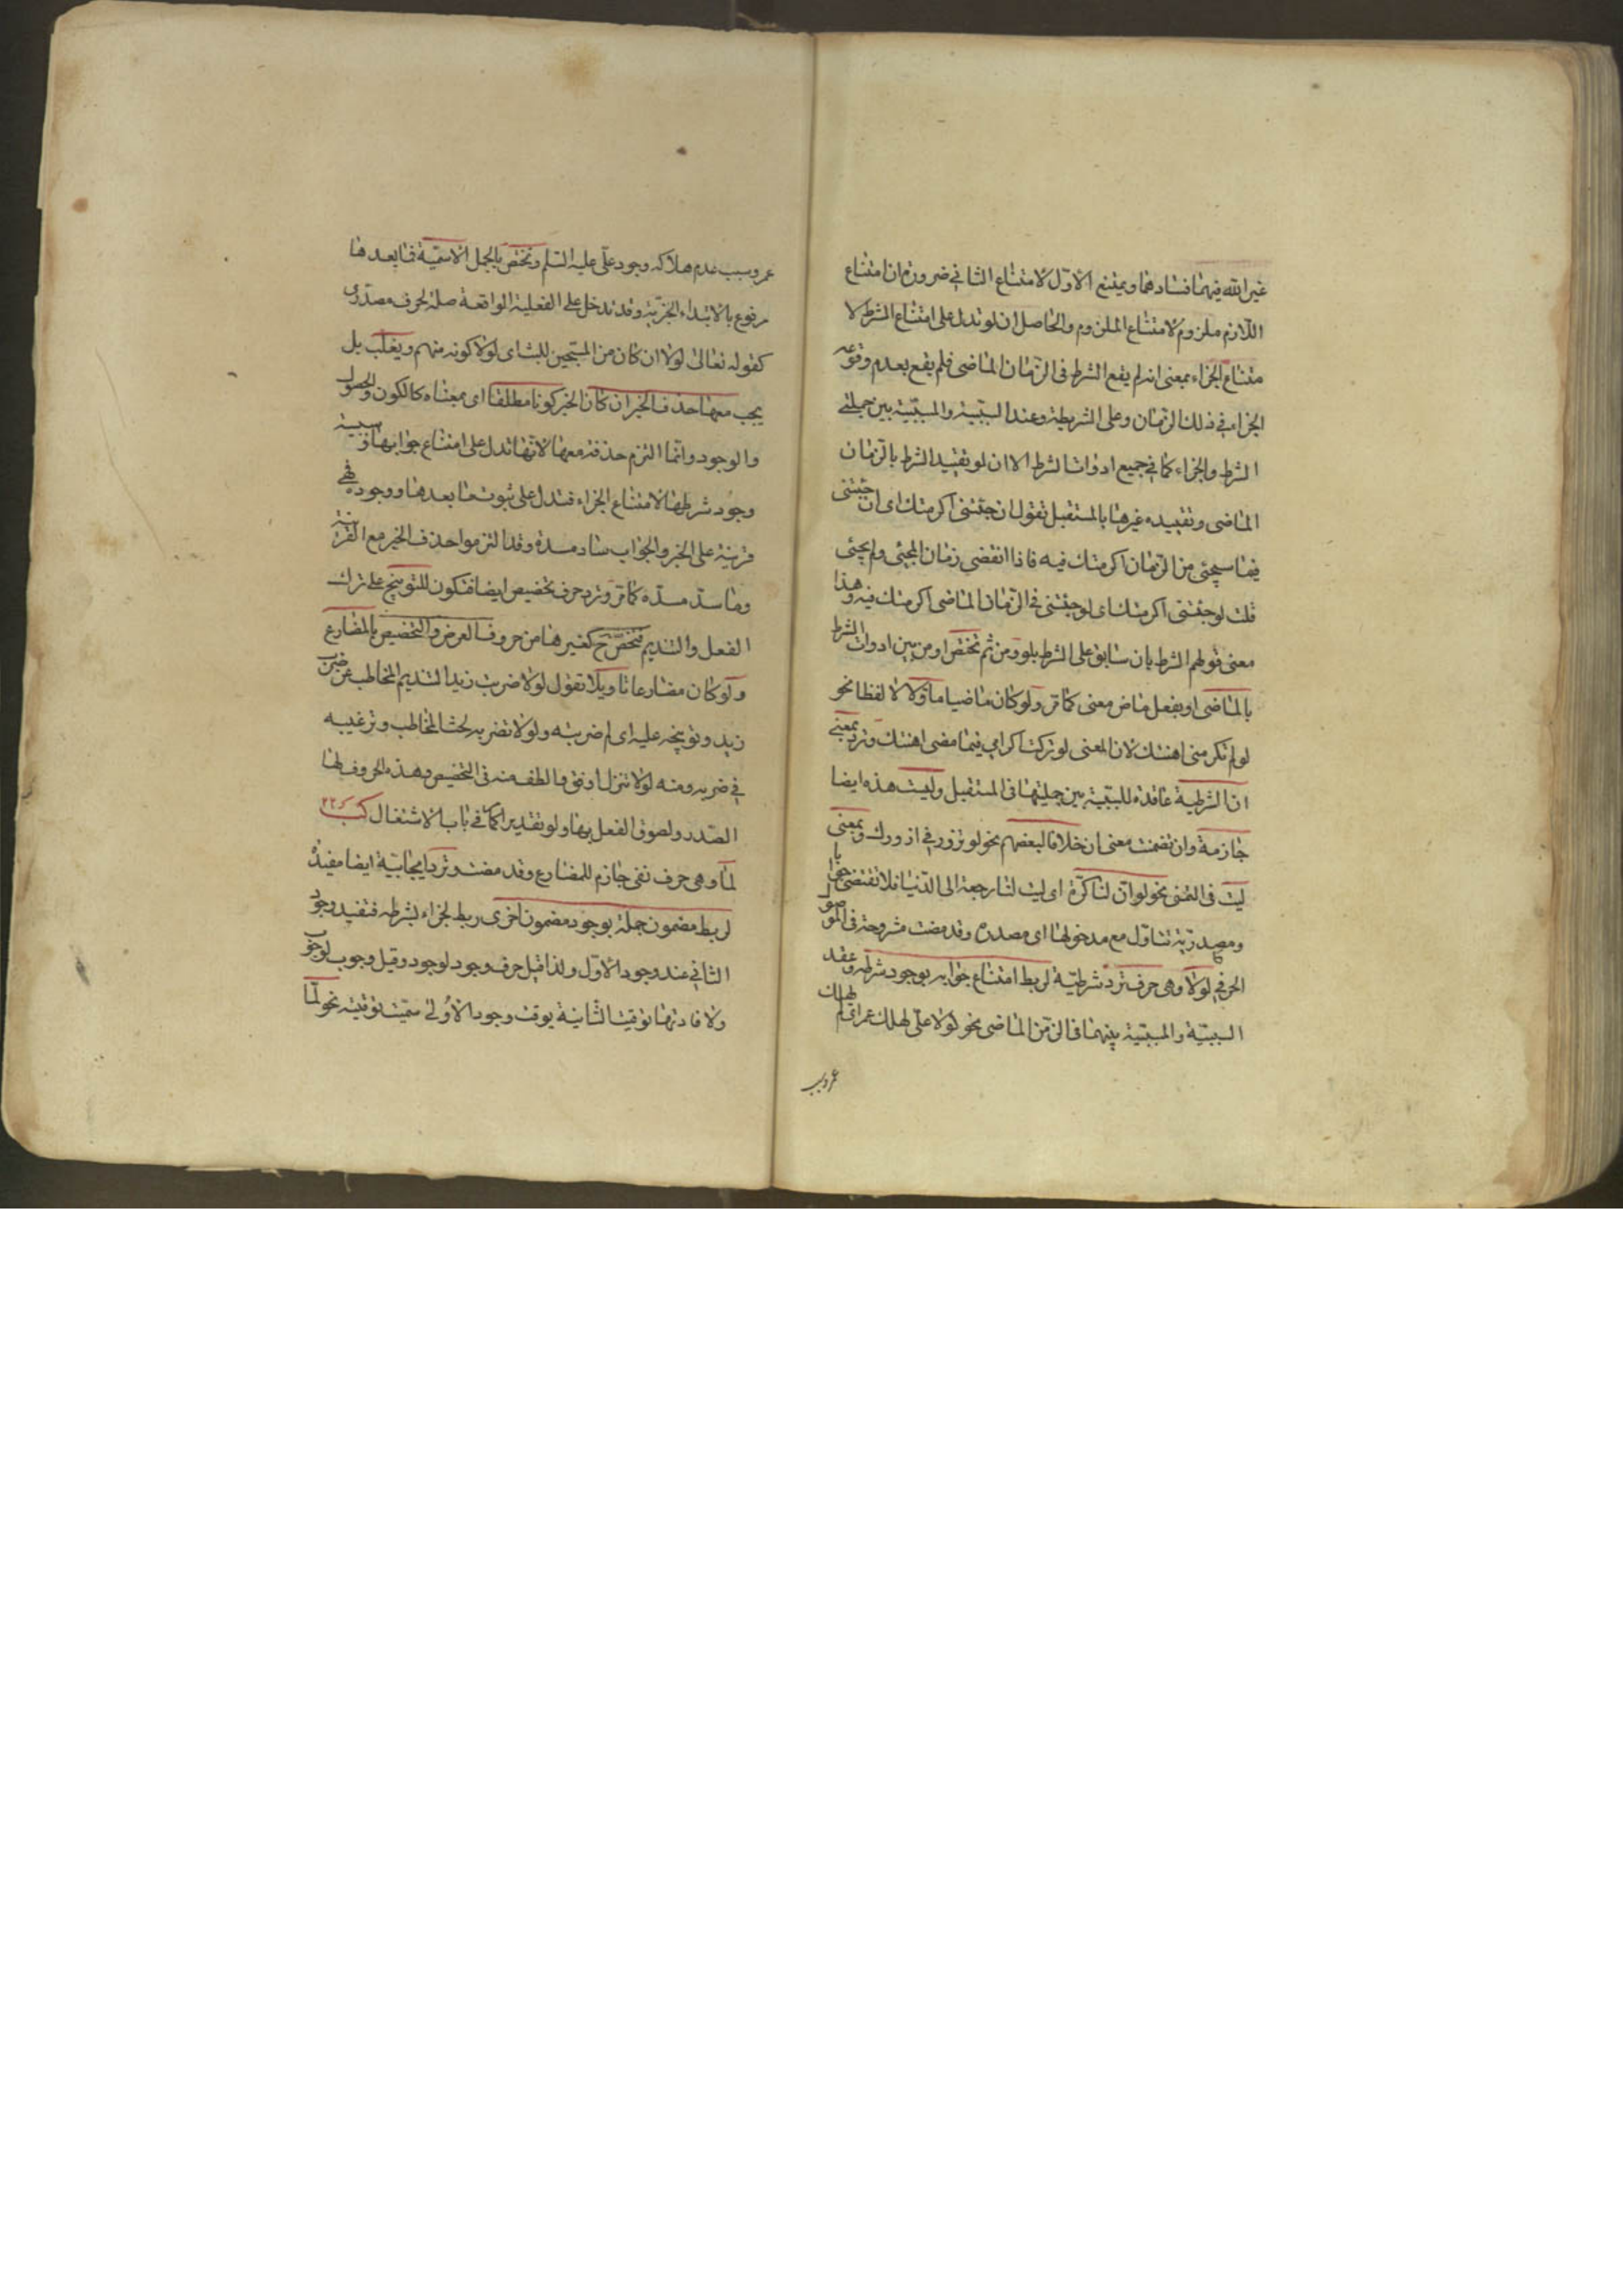 غير الله فيهما فسادهما ويمتنع الاول لامتناع الثاني ضرورة ان امتناع
اللازم ملزوم لامتناع الملزوم والحاصل ان لو تدل على امتناع الشرط لا
متناع الجزاء بمعنى انه لم يقع الشرط فى الزمان الماضى فلم يقع بعدم وقوعه
الجزاء في ذلك الزمان وعلى الشرطية وعند السببية والمسببية بين جملتي
الشرط والجزاء كما في جميع ادوات الشرط الا ان لو تقييد الشرط بالزمان
الماضى وتقييده غيرها بالمستقبل تقول ان جئتنى اكرمتك اى ان جئتنى
فيما سيجئى من الزمان اكرمتك فيه فاذا انقضى زمان المجئى ولم يجئى
قلت لو جئتنى اكرمتك اى لو جئتنى فى الزمان الماضى اكرمتك فيه وهذا
معنى قولهم الشرط بان سابق على الشرط بلو ومن ثم تختص لو من بين ادوات الشرط
بالماضى او بفعل ماض معنى كما مر ولو كان ماضيا مأولا لا لفظا نحو
لو لم تكرمنى اهنتك لان المعنى لو تركت اكرامي فيما مضى اهنتك وترد بمعنى
ان الشرطية عاقدة للسببية بين جملتيها فى المستقبل وليست هذه ايضا
جازمة وان تضمنت معنى ان خلافا لبعضهم نحو لو تزورني ازورك وبمعنى
ليت فى التمنى نحو لو ان لنا كرة اى ليت لنا رجعة الى الدنيا فلا تقتضى جوابا
ومصدرية تتأول مع مدخولها اى مصدره وقد مضت مشروحة فى الموصول
الحرفي لولا وهى حرف ترد شرطية لربط امتناع جوابه بوجود شرطه وعقد
السببية والمسببية بينهما فى الزمن الماضى نحو لولا على لهلك عمر اى لم يهلك
عمر وسبب
عمر وسبب عدم هلاكه وجود على عليه السلم وتختص بالجمل الاسمية فما بعدها
مرفوع بالابتداء الخبرية وقد تدخل على الفعلية الواقعة صلة لحرف مصدرى
كقوله تعالى لولا ان كان من المسبحين للبث اى لولا كونه منهم ويغلب بل
يجب معها حذف الخبر ان كان الخبر كونا مطلقا اى بمعناه كالكون والحصول
والوجود وانما التزم حذفه معها لانها تدل على امتناع جوابها وسببية
وجود شرطها لامتناع الجزاء فتدل على ثبوت ما بعدها ووجوده فهي
قرينة على الخبر والجواب ساد مسده وقد التزموا حذف الخبر مع القرينة
وما سد مسده كما مر وترد حرف تحضيض ايضا فتكون للتوبيخ على ترك
الفعل والتنديم فتختص ح كغيرها من حروف العرض والتحضيض بالمضارع
ولو كان مضارعا تأويلا تقول لولا ضربت زيدا لتنديم المخاطب عن ضرب
زيد وتوبيخه عليه اى لم ضربته ولولا تضربه لحث المخاطب وترغيبه
في ضربه ومنه لولا تنزل ادنى فالطف منه فى التحضيض وهذه الحروف لها
الصدر ولصوق الفعل بها ولو تقديرا كما فى باب الاشتغال
لما وهى حرف نفى جازم للمضارع وقد مضت وترد ايجابية ايضا مفيدة
لربط مضمون جملة بوجود مضمون اخرى ربط الجزاء بشرطه فتفيد وجود
الثاني عند وجود الاول ولذا قيل حرف وجود لوجود وقيل وجوب لوجوب
ولافادتها توقيت الثانية بوقت وجود الاولى سميت توقيتية نحو لما